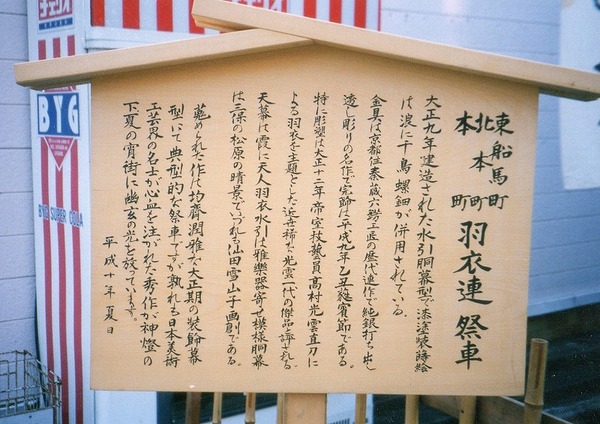 東船馬町
北本町
本町
羽衣連 祭車
大正九年建造された水引胴幕型で漆塗装蒔絵
は波に千鳥螺鈿が併用されている。
金具は京都住秦蔵六錺工匠の歴代連作で純銀打ち出し
透し彫りの名作で完飾は平成九年乙丑蕤賓節である。
特に彫塑は大正十二年帝室技藝員高村光雲直刀に
よる羽衣を主題とした近世稀な光雲一代の傑品と評される
天幕は霞に天人羽衣水引は雅樂器寄せ模様胴幕
は三保の松原の晴景でいづれも仙田雪山子画創である。
蒐められた作は均齊潤雅で大正期の装飾幕
型いて典型的な祭車ですが孰れも日本美術
工芸界の名士が心血を注がれた秀作が神燈の
下夏の宵街に幽玄の光を放っています。
平成十年夏日
チェリオ
BYG
BYG SUPER COLA